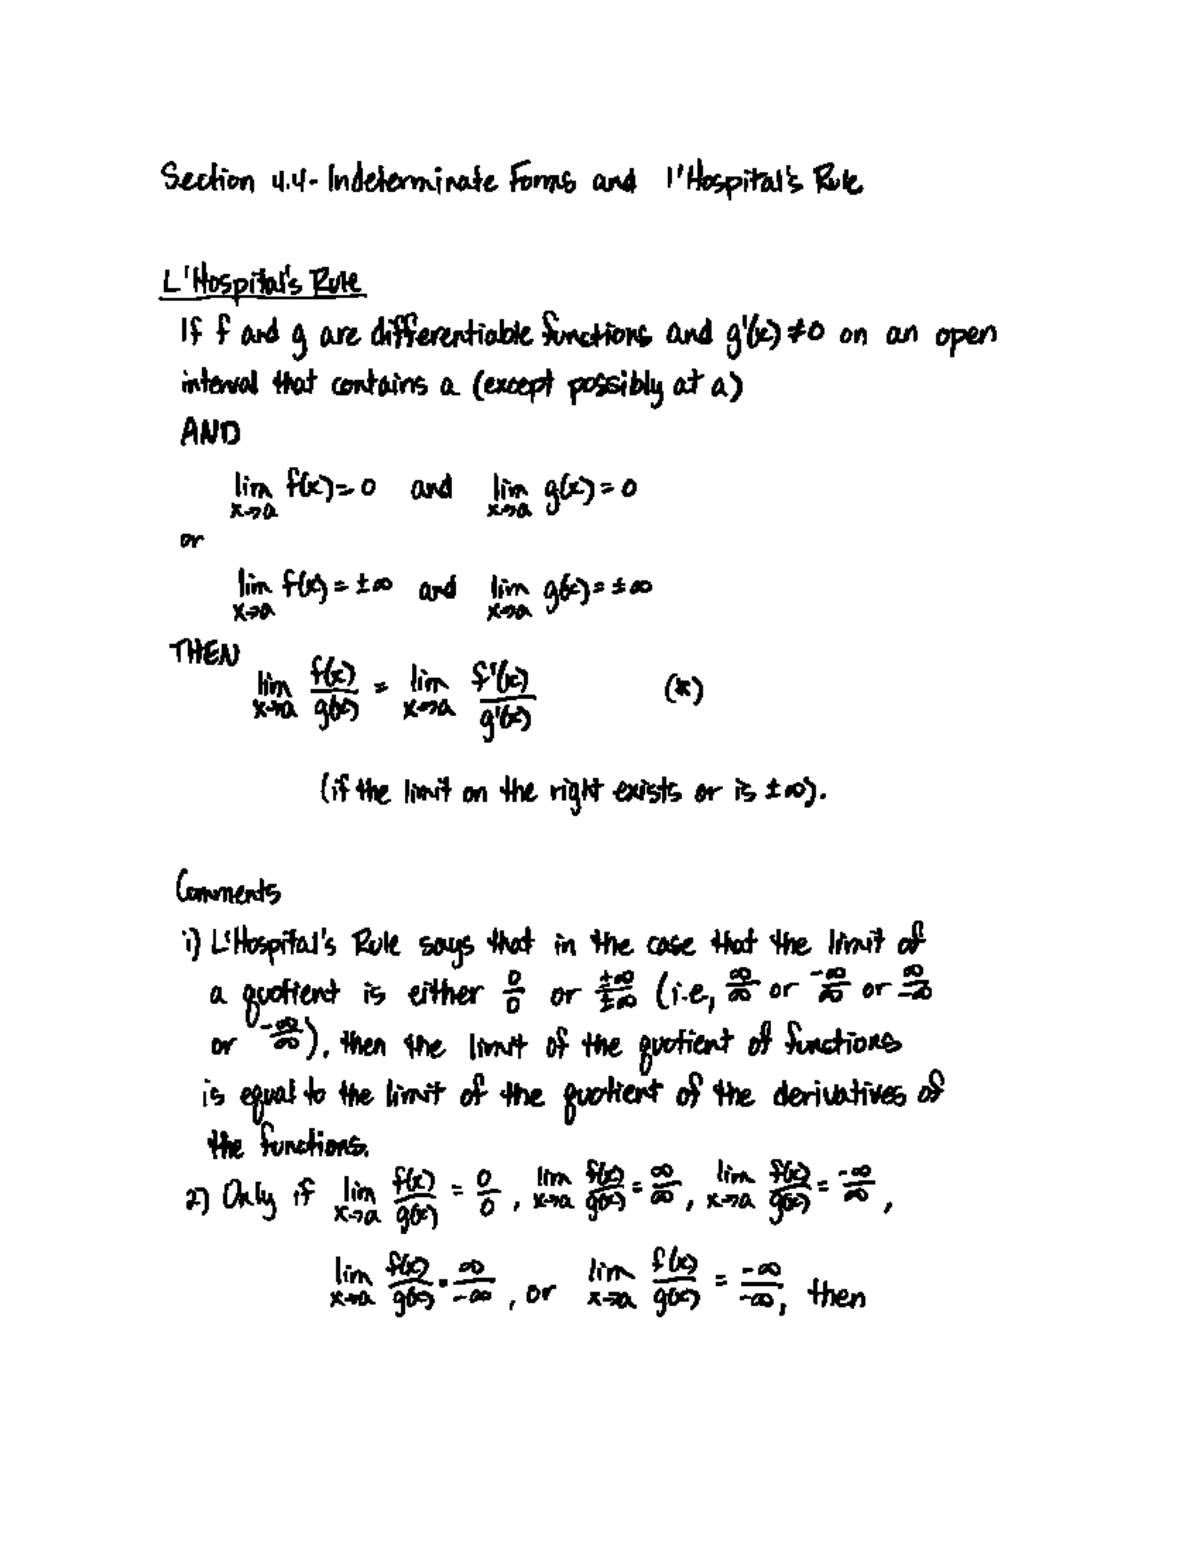 Section 4.4- Indeterminate Forms and l'Hospital's Rule
L'Hospital's Rule
If f and g are differentiable functions and g'(x) ≠ 0 on an open
interval that contains a (except possibly at a)
AND
lim x→a f(x) = 0 and lim x→a g(x) = 0
or
lim x→a f(x) = ±∞ and lim x→a g(x) = ±∞
THEN
lim x→a f(x)/g(x) = lim x→a f'(x)/g'(x) (*)
(if the limit on the right exists or is ±∞).
Comments
1) L'Hospital's Rule says that in the case that the limit of
a quotient is either 0/0 or ±∞/±∞ (i.e, ∞/∞ or -∞/∞ or ∞/-∞
or -∞/∞), then the limit of the quotient of functions
is equal to the limit of the quotient of the derivatives of
the functions.
2) Only if lim x→a f(x)/g(x) = 0/0, lim x→a f(x)/g(x) = ∞/∞, lim x→a f(x)/g(x) = -∞/∞,
lim x→a f(x)/g(x) = ∞/-∞, or lim x→a f(x)/g(x) = -∞/-∞, then